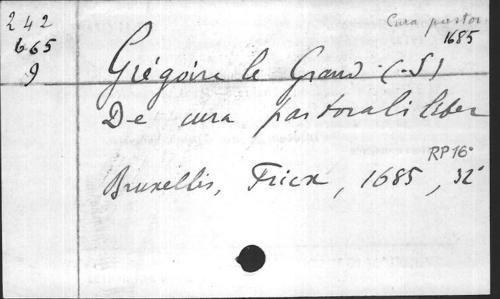 242
665
9
Cura pastor
1685
Grégoire le Grand (-S)
De cura pastorali liber
RP16°
Bruxellis, Fricx, 1685, 32°